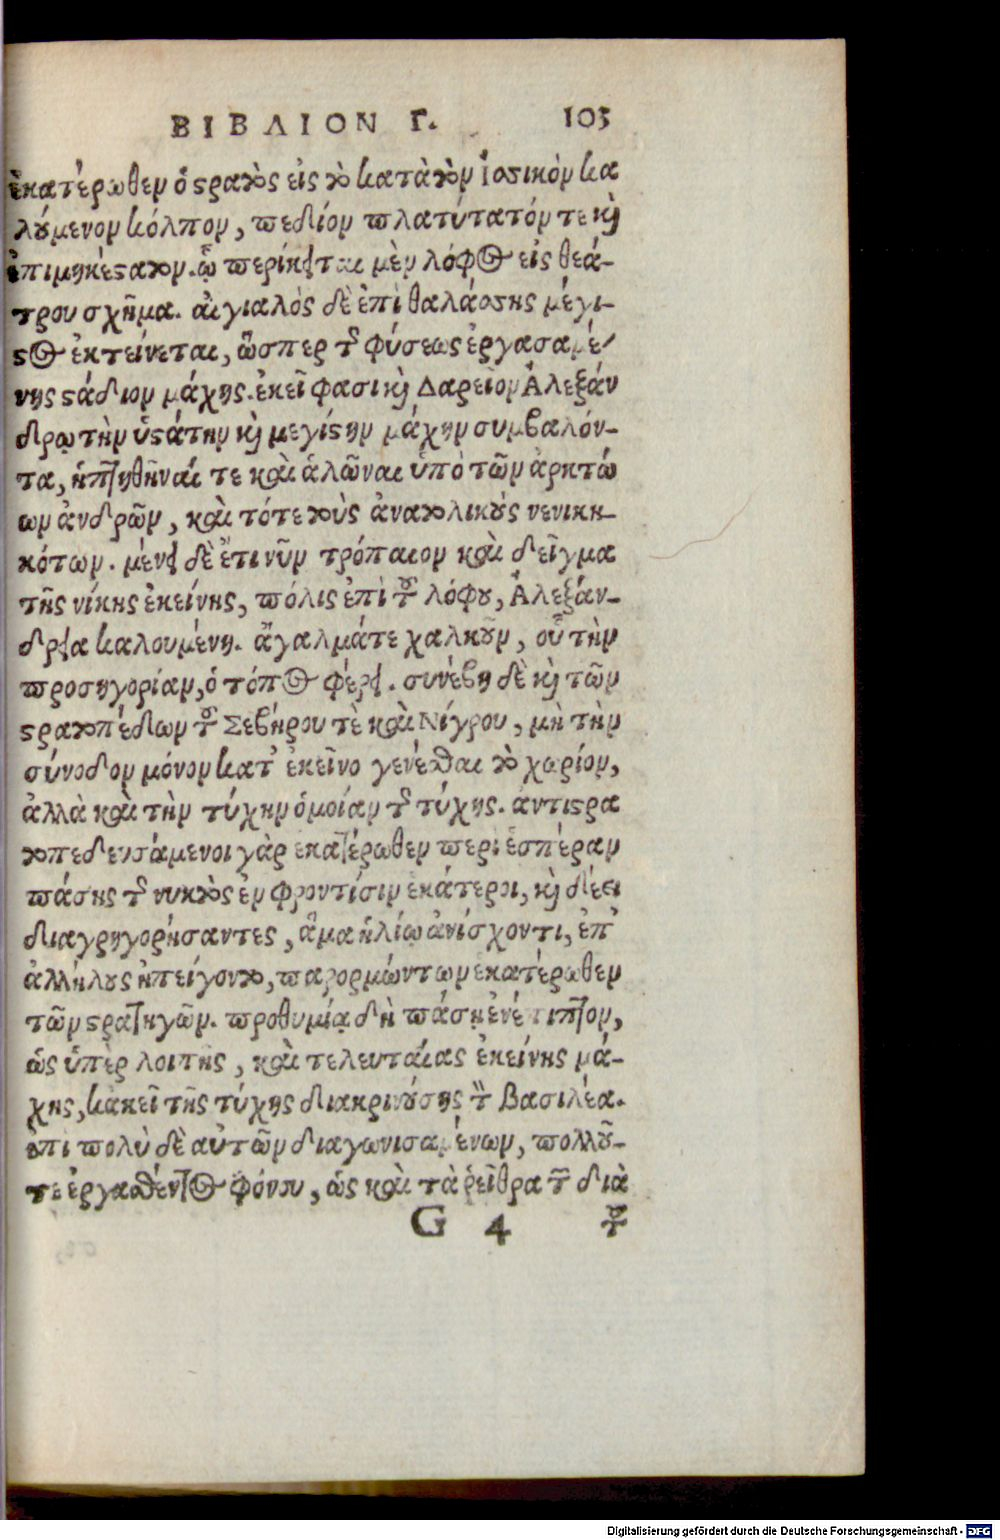 ΒΙΒΛΙΟΝ Γ. 103
ἑκατέρωθεν ὁ στρατὸς εἰς τὸ κατὰ τὸν Ἰσσικὸν κα
λούμενον κόλπον, πεδίον πλατύτατόν τε καὶ
ἐπιμηκέστατον. ᾧ περίκειται μὲν λόφος εἰς θεά-
τρου σχῆμα. αἰγιαλὸς δὲ ἐπὶ θαλάσσης μέγι-
στος ἐκτείνεται, ὥσπερ τῆς φύσεως ἐργασαμέ
νης στάδιον μάχης. ἐκεῖ φασὶ καὶ Δαρεῖον Ἀλεξάν
δρῳ τὴν ὑστάτην καὶ μεγίστην μάχην συμβαλόν-
τα, ἡττηθῆναί τε καὶ ἁλῶναι ὑπὸ τῶν ἀρκτώ
ων ἀνδρῶν, καὶ τότε τοὺς ἀνατολικοὺς νενικη-
κότων. μένει δὲ ἔτι νῦν τρόπαιον καὶ δεῖγμα
τῆς νίκης ἐκείνης, πόλις ἐπὶ τοῦ λόφου, Ἀλεξάν-
δρεια καλουμένη. ἄγαλμά τε χαλκοῦν, οὗ τὴν
προσηγορίαν, ὁ τόπος φέρει. συνέβη δὲ καὶ τῶν
στρατοπέδων τοῦ Σεβήρου τὲ καὶ Νίγρου, μὴ τὴν
σύνοδον μόνον κατ' ἐκεῖνο γενέσθαι τὸ χωρίον,
ἀλλὰ καὶ τὴν τύχην ὁμοίαν τῆς τύχης. ἀντιστρα
τοπεδευσάμενοι γὰρ ἑκατέρωθεν περὶ ἑσπέραν
πάσης τῆς νυκτὸς ἐν φροντίσιν ἑκάτεροι, καὶ δέει
διαγρηγορήσαντες, ἅμα ἡλίῳ ἀνίσχοντι, ἐπ'
ἀλλήλους ἠπείγοντο, παρορμώντων ἑκατέρωθεν
τῶν στρατηγῶν. προθυμίᾳ δὴ πάσῃ ἐνέπιπτον,
ὡς ὑπὲρ λοιπῆς, καὶ τελευταίας ἐκείνης μά-
χης, κἀκεῖ τῆς τύχης διακρινούσης τὸν βασιλέα.
ἐπὶ πολὺ δὲ αὐτῶν διαγωνισαμένων, πολλοῦ-
τε ἐργασθέντος φόνου, ὡς καὶ τὰ ῥεῖθρα τῶν διὰ
G 4 τοῦ
Digitalisierung gefördert durch die Deutsche Forschungsgemeinschaft - DFG